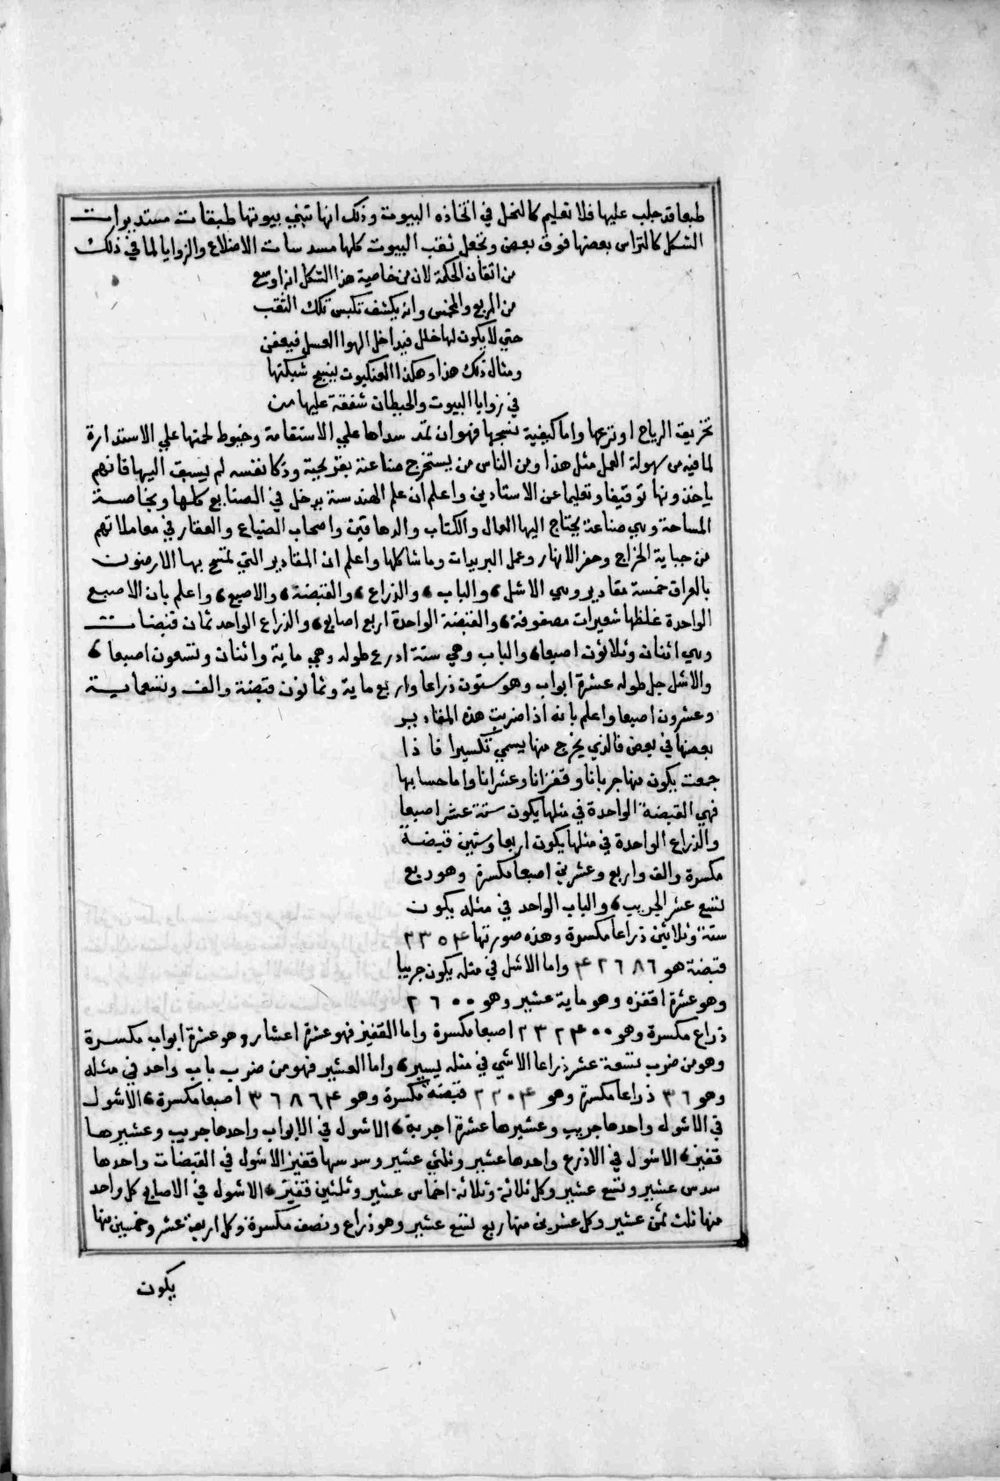 طبعا قد جلب عليها فلا تعليم كالنحل في اتخاذه البيوت وذلك انها تبني بيوتها طبقات مستديرات
الشكل كالتراس بعضها فوق بعض وتجعل ثقب البيوت كلها مسدسات الاضلاع والزوايا لما في ذلك
من اتقان الحكمة لان من خاصية هذا الشكل انه اوسع
من المربع والمخمس وانه يكشف تكبس تلك الثقب
حتي لا يكون لها خلل فيداخل الهوا العسل فيعفن
ومثال ذلك هذا وهكذا العنكبوت ينسج شبكتها
في زوايا البيوت والحيطان شفقة عليها من
تخريق الرياح او نزعها واما كيفية نسجها فهو ان تمد سداها علي الاستقامة وخيوط لحمتها علي الاستدارة
لما فيه من سهولة العمل مثل هذا ومن الناس من يستخرج صناعة بقريحية وذكا نفسه لم يسبق اليها فانهم
ياخذونها توقيفا وتعليما عن الاستادين واعلم ان علم الهندسة يدخل في الصنايع كلها وبخاصة
المساحة وهي صناعة يحتاج اليها العمال والكتاب والدهاقين واصحاب الضياع والعقار في معاملاتهم
من جباية الخراج وحفر الانهار وعمل البريدات وما شاكلها واعلم ان المقادير التي تمسح بها الارضون
بالعراق خمسة مقادير وهي الاشل، والباب، والذراع، والقبضة، والاصبع، واعلم بان الاصبع
الواحدة غلظها شعيرات مصفوفة، والقبضة الواحدة اربع اصابع، والذراع الواحد ثمان قبضات
وهي اثنان وثلاثون اصبعا، والباب وهي ستة اذرع طوله وهي ماية واثنان وتسعون اصبعا،
والاشل حبل طوله عشرة ابواب وهو ستون ذراعا واربع ماية وثمانون قبضة والف وتسعماية
وعشرون اصبعا واعلم بانه اذا ضربت هذه المقادير
بعضها في بعض فالذي يخرج منها يسمي تكسيرا فاذا
جمعت يكون منها جريانا وقفزانا وعشرانا واما حسابها
فهي القبضة الواحدة في مثلها يكون ستة عشر اصبعا
والذراع الواحدة في مثلها يكون اربعا وستين قبضة
مكسرة والف واربع وعشرين اصبعا مكسرة وهو ربع
تسع عشر الجريب، والباب الواحد في مثله يكون
ستة وثلاثين ذراعا مكسرة وهذه صورتها ٢٣٥٤
قبضة هو ٤٢٦٨٦ واما الاشل في مثله يكون جريبا
وهو عشرة اقفزه وهو ماية عشير وهو ٢٦٠٠
ذراع مكسرة وهو ٢٣٢٤٠٠ اصبعا مكسرة واما القفيز فهو عشرة اعشار وهو عشرة ابواب مكسرة
وهو من ضرب تسعة عشر ذراعا الاشي في مثله يسير، واما العشير فهو من ضرب باب واحد في مثله
وهو ٣٦ ذراعا مكسرة وهو ٢٢٠٤ قبضة مكسرة وهو ٣٦٨٦٤ اصبعا مكسرة، الاشول
في الاشول واحدها جريب وعشيرها عشرة اجربة، الاشول في الابواب واحدها جريب وعشيرها
قفيز، الاشول في الاذرع واحدها عشير وثلثي عشير وسدسها قفيز الاشول في القبضات واحدها
سدس عشير وتسع عشير وكل ثلاثة وثلاثة اخماس عشير وثلثين قفيز، الاشول في الاصابع كل واحد
منها ثلث ثمن عشير وكل عشرين منها ربع تسع عشير وهو ذراع ونصف مكسرة وكل اربعة عشر وخمسين منها
يكون